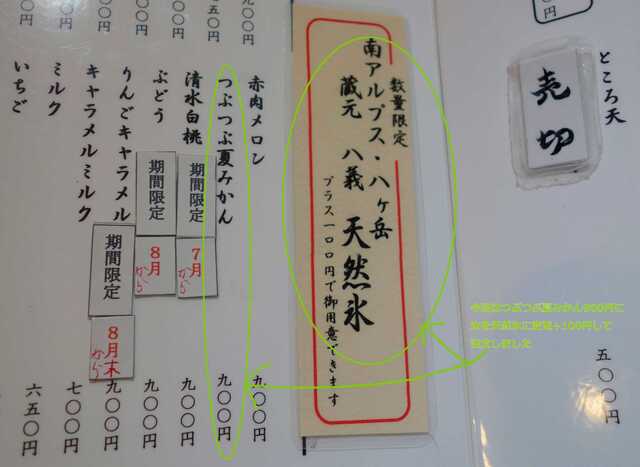 円
五〇〇円
ところ天
売切
数量限定
南アルプス・八ヶ岳
蔵元 八義 天然氷
プラス一〇〇円で御用意できます
九〇〇円
五〇円
〇〇円
〇〇円
〇〇円
赤肉メロン
九〇〇円
つぶつぶ夏みかん
九〇〇円
清水白桃
期間限定
7月から
九〇〇円
ぶどう
期間限定
8月から
九〇〇円
りんごキャラメル
期間限定
8月末から
九〇〇円
キャラメルミルク
七〇〇円
ミルク
六五〇円
いちご
今回はつぶつぶ夏みかん900円に
+100円して
注文しました